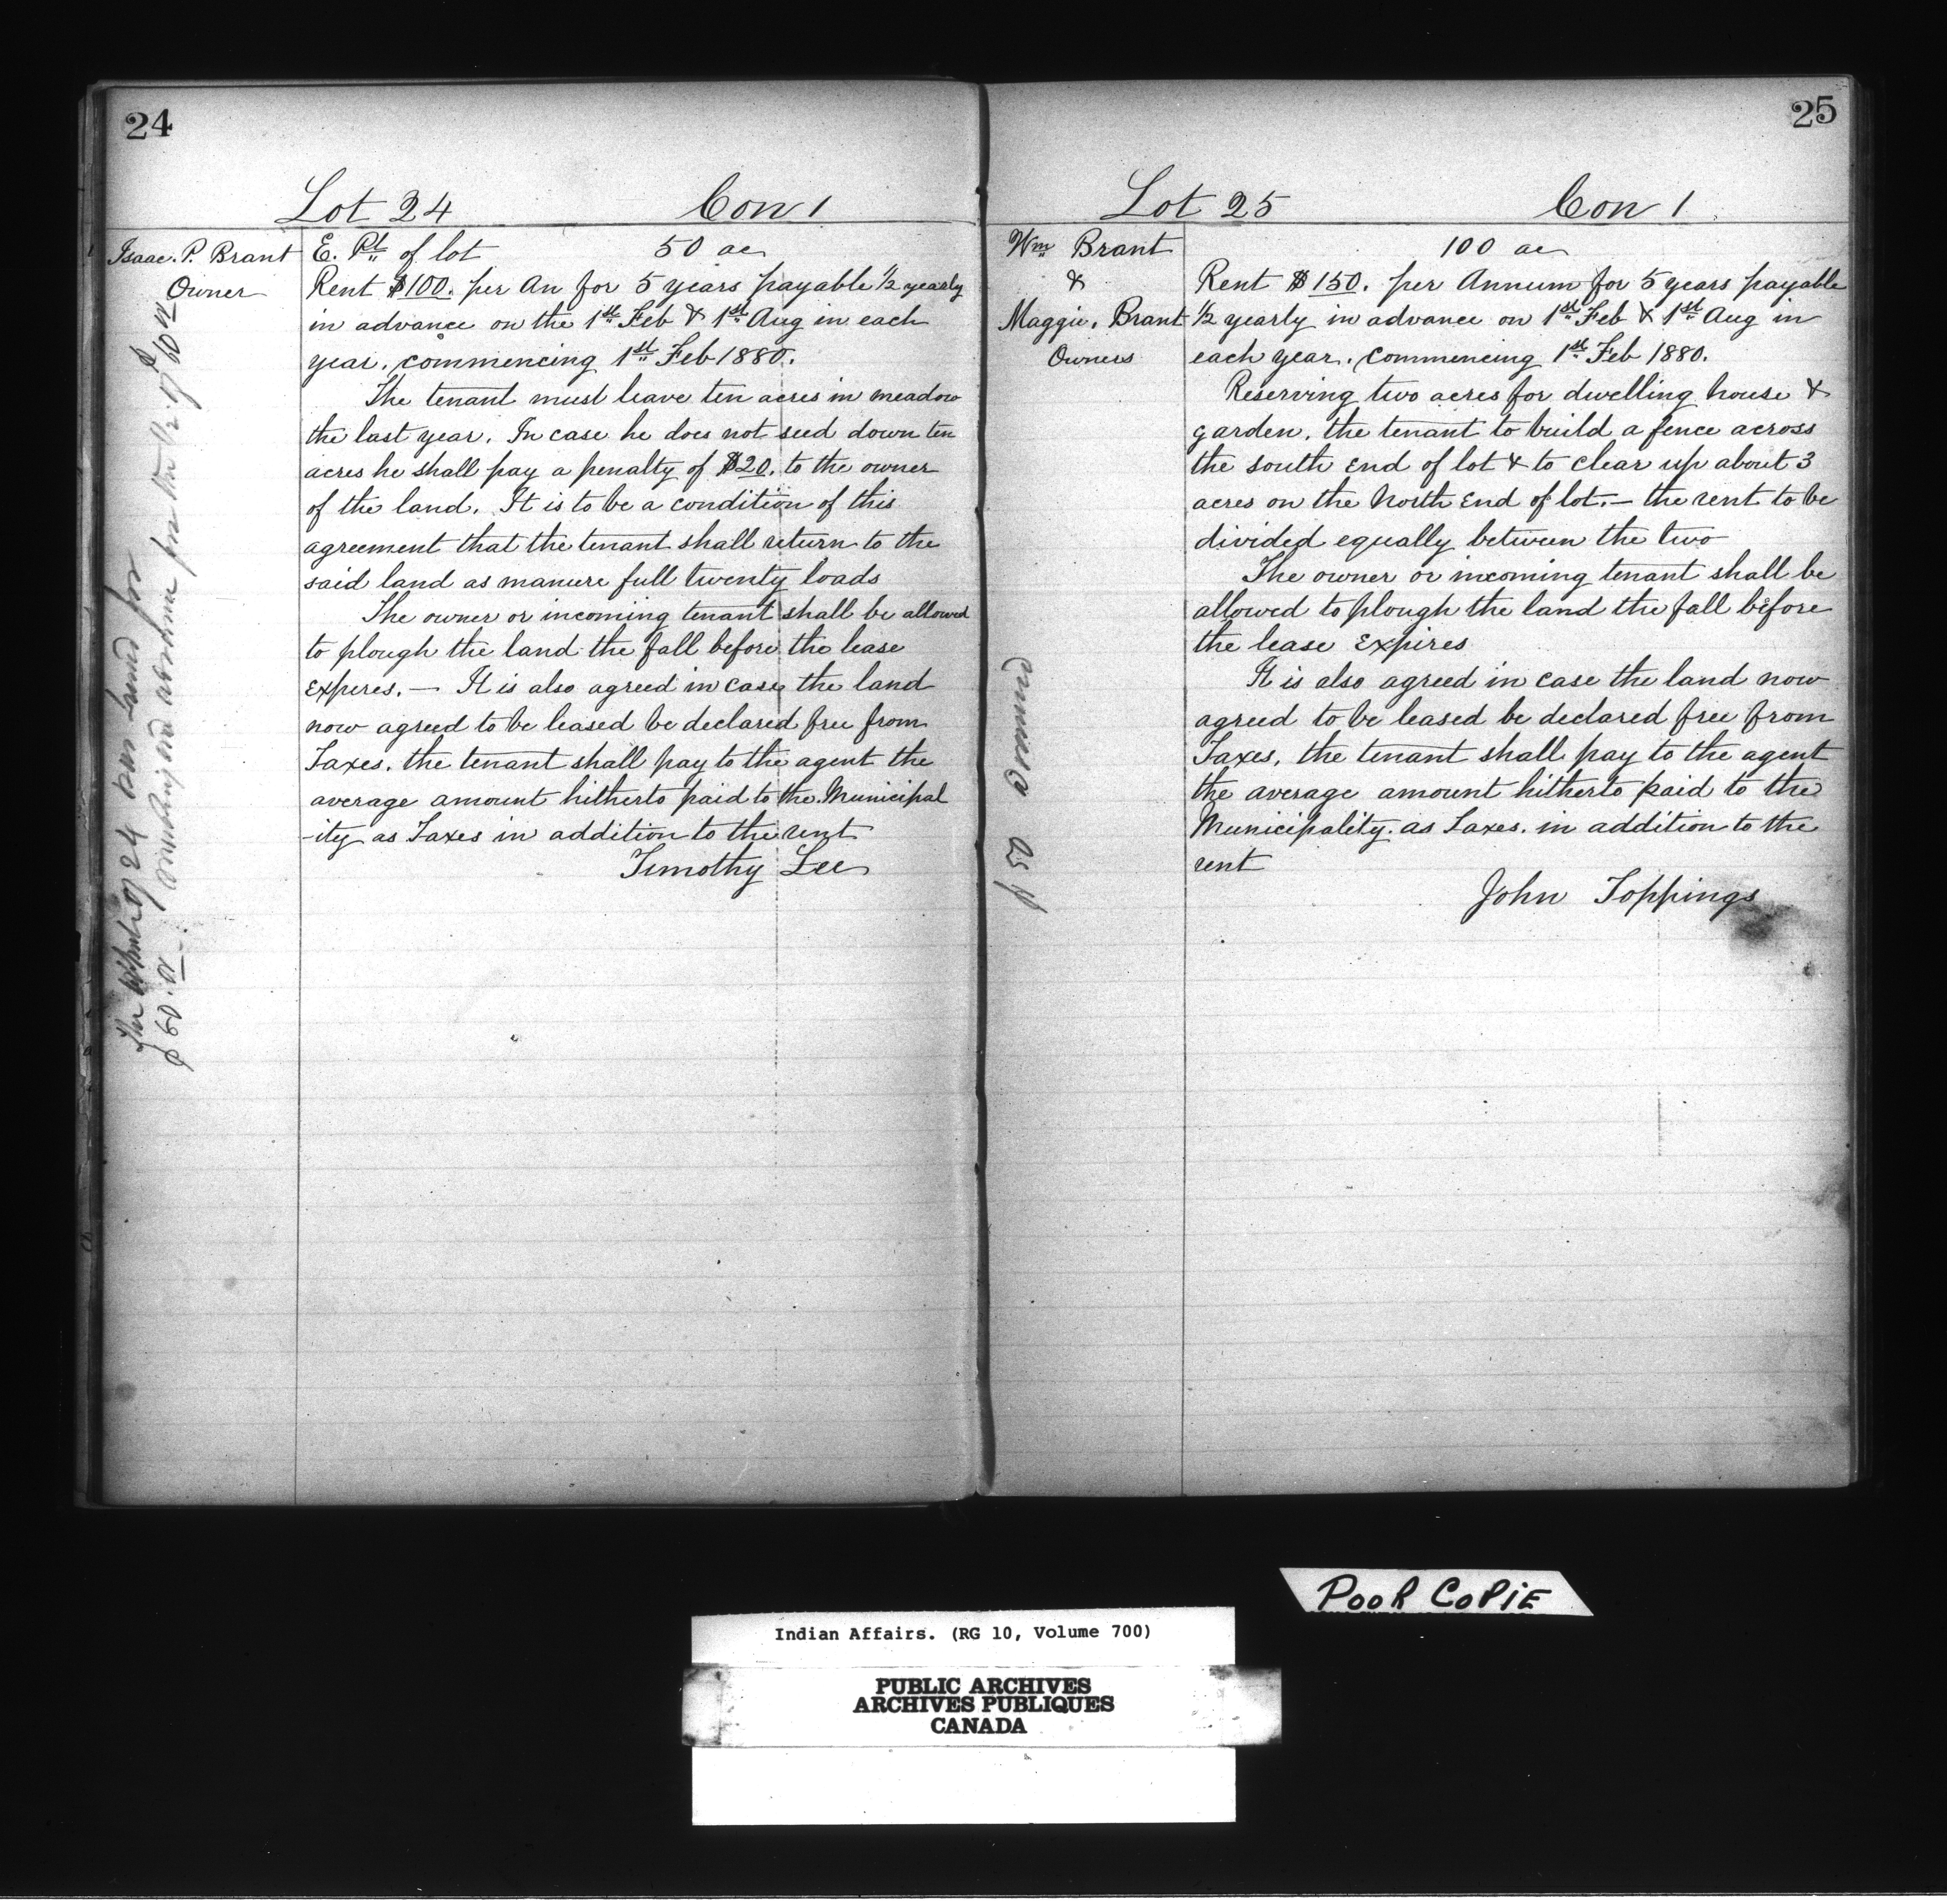 24
Lot 24 Con 1
Isaac. P. Brant
Owner
E. Pt of lot 50 ac
Rent $100. per An for 5 years payable ½ yearly
in advance on the 1st Feb & 1st Aug in each
year, commencing 1st Feb 1880.
The tenant must leave ten acres in meadow
the last year. In case he does not seed down ten
acres he shall pay a penalty of $20. to the owner
of the land. It is to be a condition of this
agreement that the tenant shall return to the
said land as manure full twenty loads
The owner or incoming tenant shall be allowed
to plough the land the fall before the lease
Expires. — It is also agreed in case the land
now agreed to be leased be declared free from
Taxes, the tenant shall pay to the agent the
average amount hitherto paid to the Municipal
-ity as Taxes in addition to the rent
Timothy Lee
of 24 for
$60.
25
Lot 25 Con 1
Wm Brant
&
Maggie. Brant
Owners
100 ac
Rent $150. per Annum for 5 years payable
½ yearly in advance on 1st Feb & 1st Aug in
each year. commencing 1st Feb 1880.
Reserving two acres for dwelling house &
garden, the tenant to build a fence across
the south End of lot & to clear up about 3
acres on the North End of lot. — the rent to be
divided equally between the two
The owner or incoming tenant shall be
allowed to plough the land the fall before
the lease Expires
It is also agreed in case the land now
agreed to be leased be declared free from
Taxes, the tenant shall pay to the agent
the average amount hitherto paid to the
Municipality. as Taxes. in addition to the
rent
John Toppings
POOR COPIE
Indian Affairs. (RG 10, Volume 700)
PUBLIC ARCHIVES
ARCHIVES PUBLIQUES
CANADA